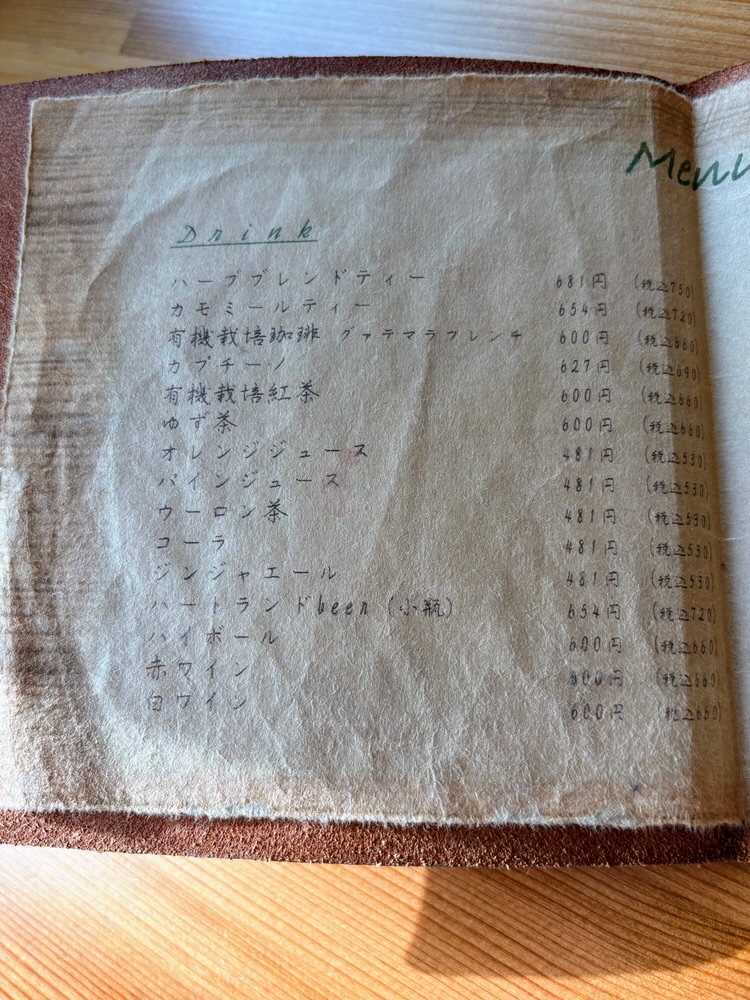 Menu
Drink
ハーブブレンドティー 681円 (税込750)
カモミールティー 654円 (税込720)
有機栽培珈琲 グァテマラフレンチ 600円 (税込660)
カプチーノ 627円 (税込690)
有機栽培紅茶 600円 (税込660)
ゆず茶 600円 (税込660)
オレンジジュース 481円 (税込530)
パインジュース 481円 (税込530)
ウーロン茶 481円 (税込530)
コーラ 481円 (税込530)
ジンジャエール 481円 (税込530)
ハートランドbeer (小瓶) 654円 (税込720)
ハイボール 600円 (税込660)
赤ワイン 600円 (税込660)
白ワイン 600円 (税込660)